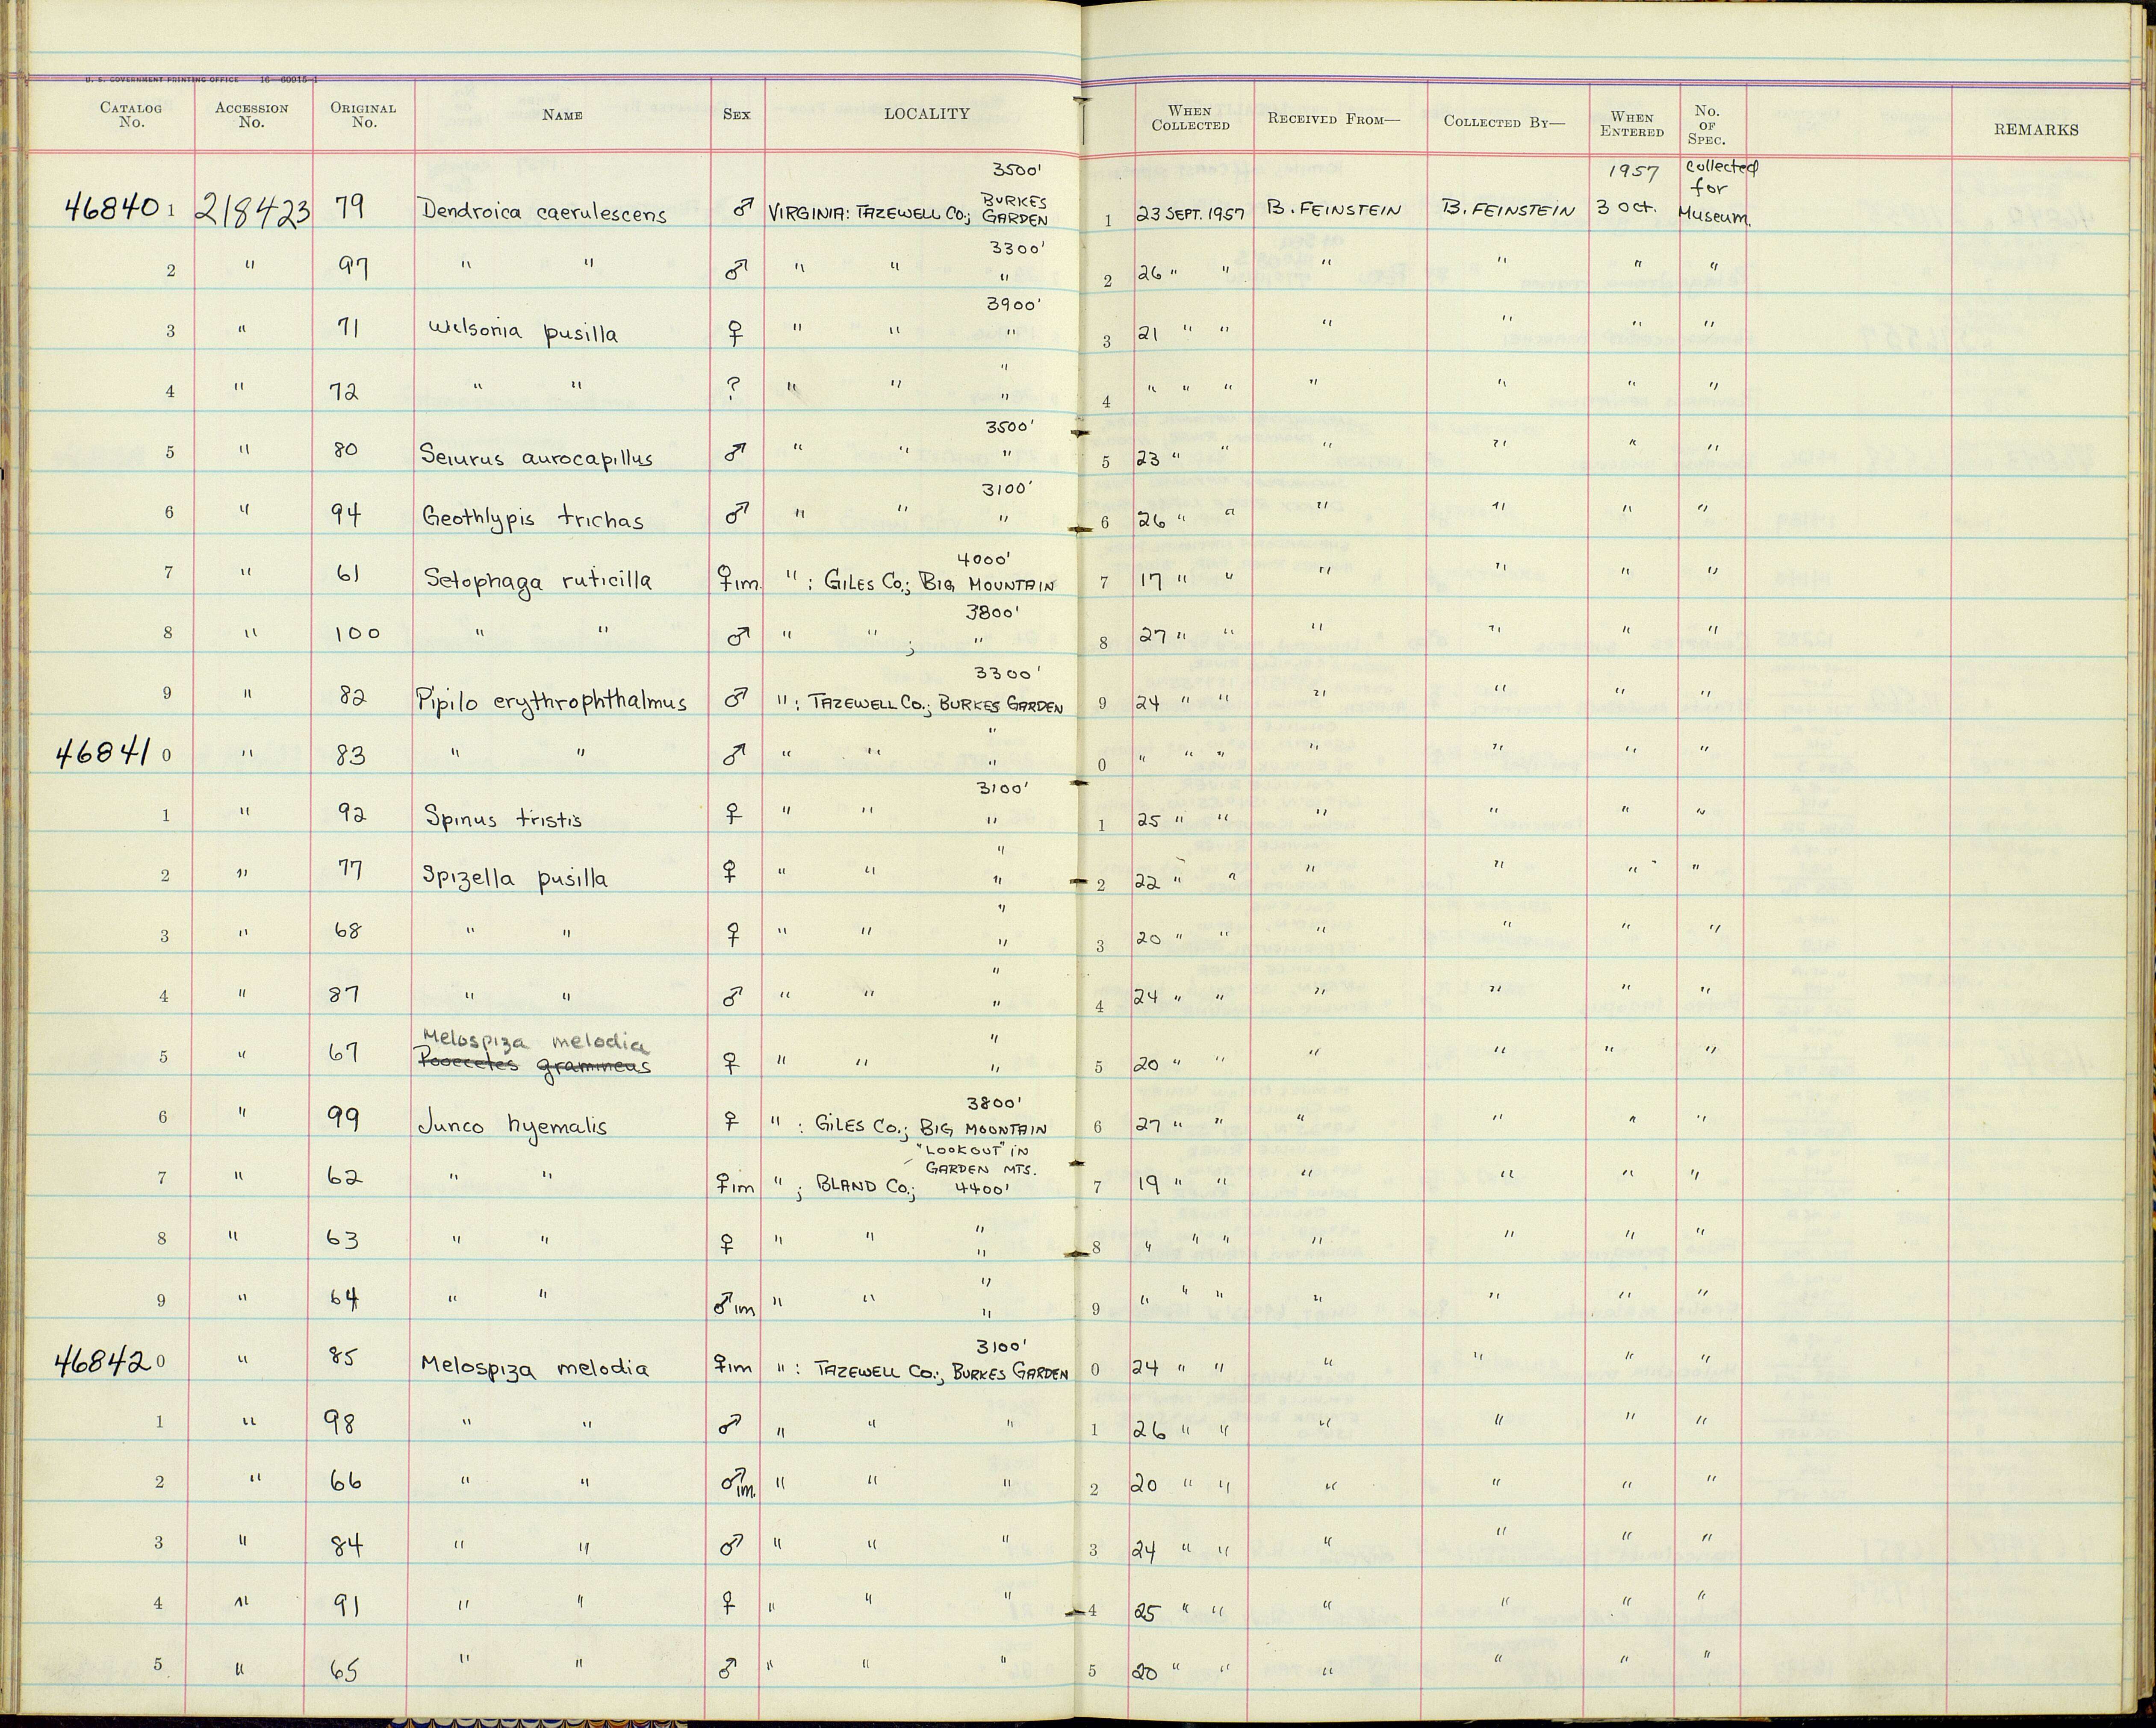 U. S. GOVERNMENT PRINTING OFFICE 16—60015-1
CATALOG No. ACCESSION No. ORIGINAL No. NAME SEX LOCALITY WHEN COLLECTED RECEIVED FROM— COLLECTED BY— WHEN ENTERED No. OF SPEC. REMARKS
3500' 1957 Collected for
46840 1 218423 79 Dendroica caerulescens ♂ VIRGINIA: TAZEWELL CO.; BURKES GARDEN 1 23 SEPT. 1957 B. FEINSTEIN B. FEINSTEIN 3 Oct. Museum
3300'
2 " 97 " " ♂ " " " 2 26 " " " " " "
3900'
3 " 71 Wilsonia pusilla ♀ " " " 3 21 " " " " " "
"
4 " 72 " " ? " " " 4 " " " " " " "
3500'
5 " 80 Seiurus aurocapillus ♂ " " " 5 23 " " " " " "
3100'
6 " 94 Geothlypis trichas ♂ " " " 6 26 " " " " " "
4000'
7 " 61 Setophaga ruticilla ♀im. " : GILES CO.; BIG MOUNTAIN 7 17 " " " " " "
3800'
8 " 100 " " ♂ " " ; " 8 27 " " " " " "
3300'
9 " 82 Pipilo erythrophthalmus ♂ " : TAZEWELL CO.; BURKES GARDEN 9 24 " " " " " "
"
46841 0 " 83 " " ♂ " " " 0 " " " " " " "
3100'
1 " 92 Spinus tristis ♀ " " " 1 25 " " " " " "
"
2 " 77 Spizella pusilla ♀ " " " 2 22 " " " " " "
"
3 " 68 " " ♀ " " " 3 20 " " " " " "
"
4 " 87 " " ♂ " " " 4 24 " " " " " "
Melospiza melodia "
5 " 67 Pooecetes gramineus ♀ " " " 5 20 " " " " " "
3800'
6 " 99 Junco hyemalis ♀ " : GILES CO.; BIG MOUNTAIN 6 27 " " " " " "
"LOOKOUT" IN
GARDEN MTS.
7 " 62 " " ♀im " ; BLAND CO.; 4400' 7 19 " " " " " "
"
8 " 63 " " ♀ " " " 8 " " " " " " "
"
9 " 64 " " ♂im " " " 9 " " " " " " "
3100'
46842 0 " 85 Melospiza melodia ♀im " : TAZEWELL CO.; BURKES GARDEN 0 24 " " " " " "
1 " 98 " " ♂ " " " 1 26 " " " " " "
2 " 66 " " ♂im. " " " 2 20 " " " " " "
3 " 84 " " ♂ " " " 3 24 " " " " " "
4 " 91 " " ♀ " " " 4 25 " " " " " "
5 " 65 " " ♂ " " " 5 20 " " " " " "